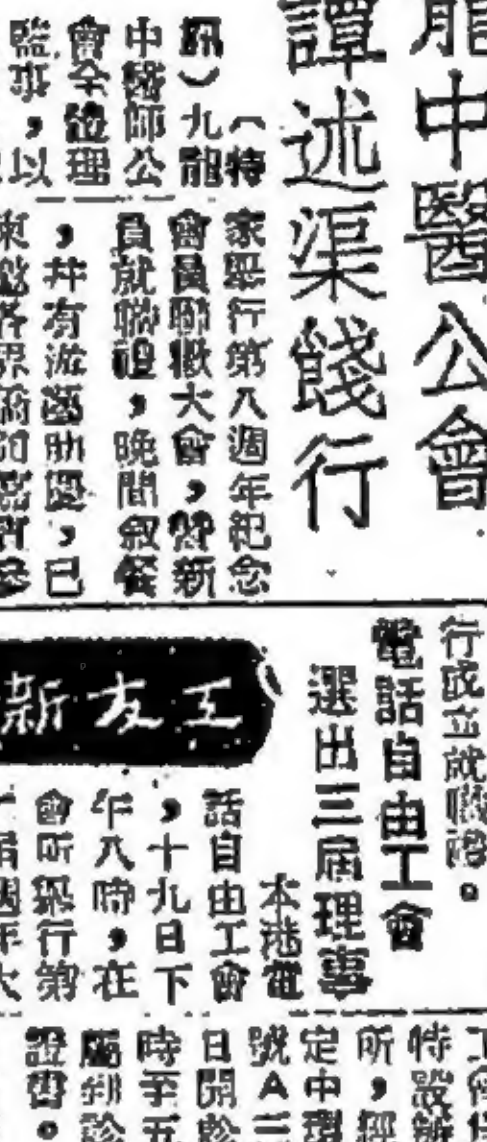 龍中醫公會
譚述渠餞行
（特
訊）九龍
中醫師公
會全體理
監事，以
家舉行第八週年紀念
會員聯歡大會，暨新
員就職禮，晚間叙餐
，并有游藝助慶，已
行成立就職禮。
電話自由工會
選出三屆理事
工友新
本港電
話自由工會
，十九日下
午八時，在
會所舉行第
特設辦
所，經
定中環
號A二
日開診
時至五
屬到診
證書。